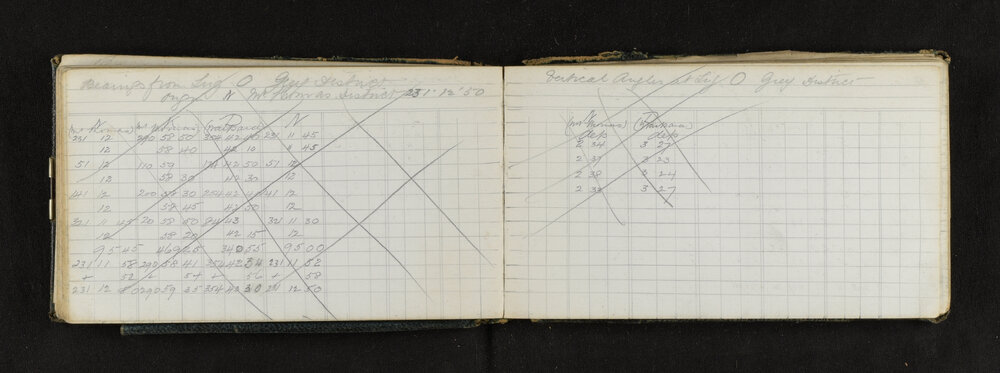 Bearings from Sig O Grey District
Origin N Mt Thomas District 231° 12' 50
N K D N
(Mt Thomas) (Mt Thomas)
231 12 290 58 50 354 42 40 231 11 45
12 58 40 42 10 11 45
51 12 110 59 174 42 50 51 12
12 58 30 42 30 12
141 12 200 58 30 264 42 40 141 12
12 58 45 42 50 12
321 11 45 20 58 50 84 43 321 11 30
12 58 20 42 15 12
95 45 469 25 340 55 95 00
231 11 58 290 58 41 354 42 34 231 11 52
+ 52 + 54 + 56 + 58
231 12 50 290 59 35 354 43 30 231 12 50
Vertical Angles at Sig O Grey District
K D
(Mt Thomas)
dep dep
2 34 3 27
2 39 3 23
2 38 3 24
2 33 3 27